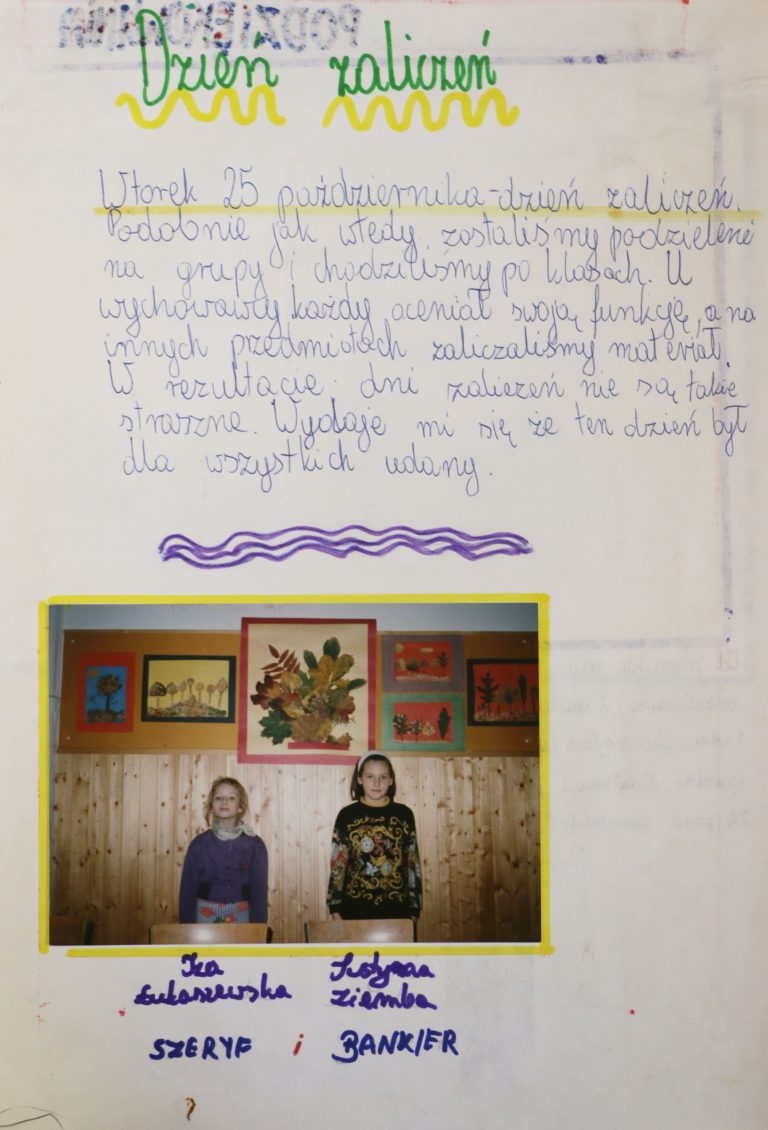 Dzień zaliczeń
Wtorek 25 października - dzień zaliczeń.
Podobnie jak wtedy, zostaliśmy podzieleni
na grupy i chodziliśmy po klasach. U
wychowawcy każdy oceniał swoją funkcję, a na
innych przedmiotach zaliczaliśmy materiał.
W rezultacie dni zaliczeń nie są takie
straszne. Wydaje mi się że ten dzień był
dla wszystkich udany.
Iza
Łukaszewska
Ziemba
SZERYF i BANKIER